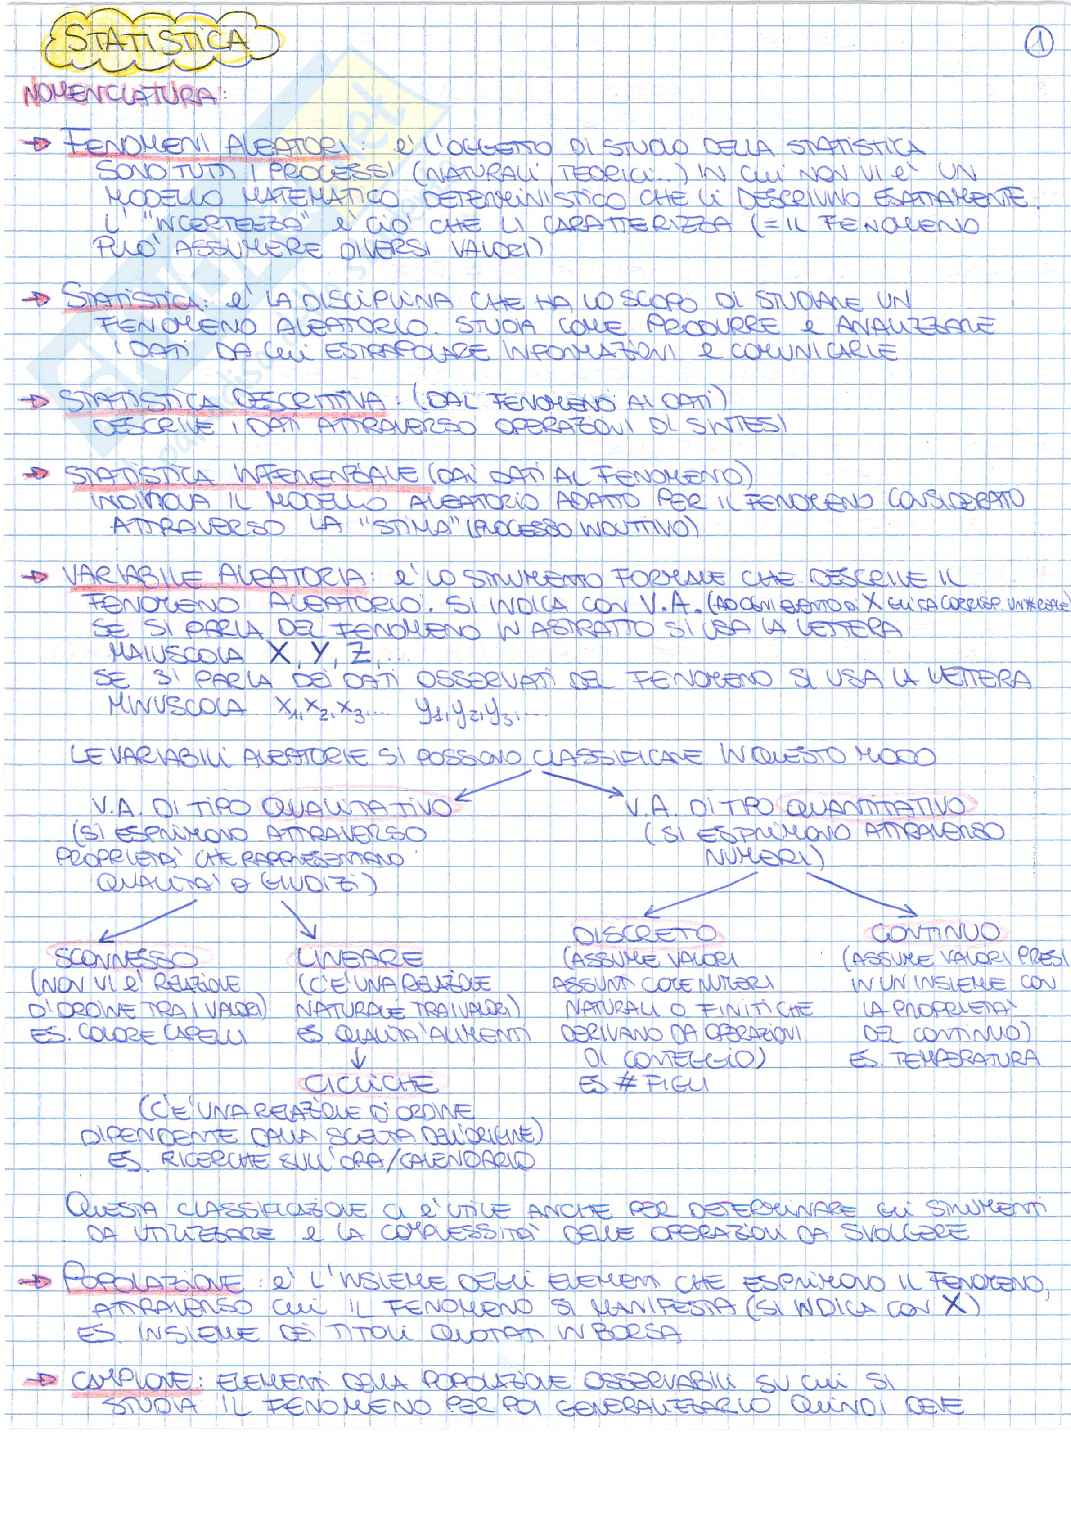 STATISTICA
1
NOMENCLATURA:
→ FENOMENI ALEATORI: è L'OGGETTO DI STUDIO DELLA STATISTICA
SONO TUTTI I PROCESSI (NATURALI, TEORICI...) IN CUI NON VI è UN
MODELLO MATEMATICO DETERMINISTICO CHE LI DESCRIVONO ESATTAMENTE.
L' "INCERTEZZA" è CIO' CHE LI CARATTERIZZA (= IL FENOMENO
PUO' ASSUMERE DIVERSI VALORI)
→ STATISTICA: è LA DISCIPLINA CHE HA LO SCOPO DI STUDIARE UN
FENOMENO ALEATORIO. STUDIA COME PRODURRE e ANALIZZARE
I DATI DA CUI ESTRAPOLARE INFORMAZIONI e COMUNICARLE
→ STATISTICA DESCRITTIVA: (DAL FENOMENO AI DATI)
DESCRIVE I DATI ATTRAVERSO OPERAZIONI DI SINTESI
→ STATISTICA INFERENZIALE (DAI DATI AL FENOMENO)
INDIVIDUA IL MODELLO ALEATORIO ADATTO PER IL FENOMENO CONSIDERATO
ATTRAVERSO LA "STIMA" (PROCESSO INDUTTIVO)
→ VARIABILE ALEATORIA: è LO STRUMENTO FORMALE CHE DESCRIVE IL
FENOMENO ALEATORIO. SI INDICA CON V.A. (AD OGNI EVENTO DI X
SE SI PARLA DEL FENOMENO IN ASTRATTO SI USA LA LETTERA
MAIUSCOLA X, Y, Z, ...
SE SI PARLA DEI DATI OSSERVATI DEL FENOMENO SI USA LA LETTERA
MINUSCOLA x1, x2, x3... y1, y2, y3, ...
LE VARIABILI ALEATORIE SI POSSONO CLASSIFICARE IN QUESTO MODO
V.A. DI TIPO QUALITATIVO
(SI ESPRIMONO ATTRAVERSO
PROPRIETA' CHE RAPPRESENTANO
QUALITA' O GIUDIZI)
V.A. DI TIPO QUANTITATIVO
(SI ESPRIMONO ATTRAVERSO
NUMERI)
SCONNESSO
(NON VI è RELAZIONE
D'ORDINE TRA I VALORI)
ES. COLORE CAPELLI
LINEARE
(C'E' UNA RELAZIONE
NATURALE TRA I VALORI)
ES. QUALITA' ALIMENTI
CICLICHE
(C'E' UNA RELAZIONE D'ORDINE
DIPENDENTE DALLA SCELTA DELL'ORIGINE)
ES. RICERCHE SULL'ORA/CALENDARIO
DISCRETO
(ASSUME VALORI
ASSUNTI COME NUMERI
NATURALI O FINITI CHE
DERIVANO DA OPERAZIONI
DI CONTEGGIO)
ES # FIGLI
CONTINUO
(ASSUME VALORI PRESI
IN UN INSIEME CON
LA PROPRIETA'
DEL CONTINUO)
ES. TEMPERATURA
QUESTA CLASSIFICAZIONE CI è UTILE ANCHE PER DETERMINARE GLI STRUMENTI
DA UTILIZZARE e LA COMPLESSITA' DELLE OPERAZIONI DA SVOLGERE
→ POPOLAZIONE: è L'INSIEME DEGLI ELEMENTI CHE ESPRIMONO IL FENOMENO,
ATTRAVERSO CUI IL FENOMENO SI MANIFESTA (SI INDICA CON X)
ES. INSIEME DEI TITOLI QUOTATI IN BORSA
→ CAMPIONE: ELEMENTI DELLA POPOLAZIONE OSSERVABILI SU CUI SI
STUDIA IL FENOMENO PER POI GENERALIZZARLO QUINDI DEVE